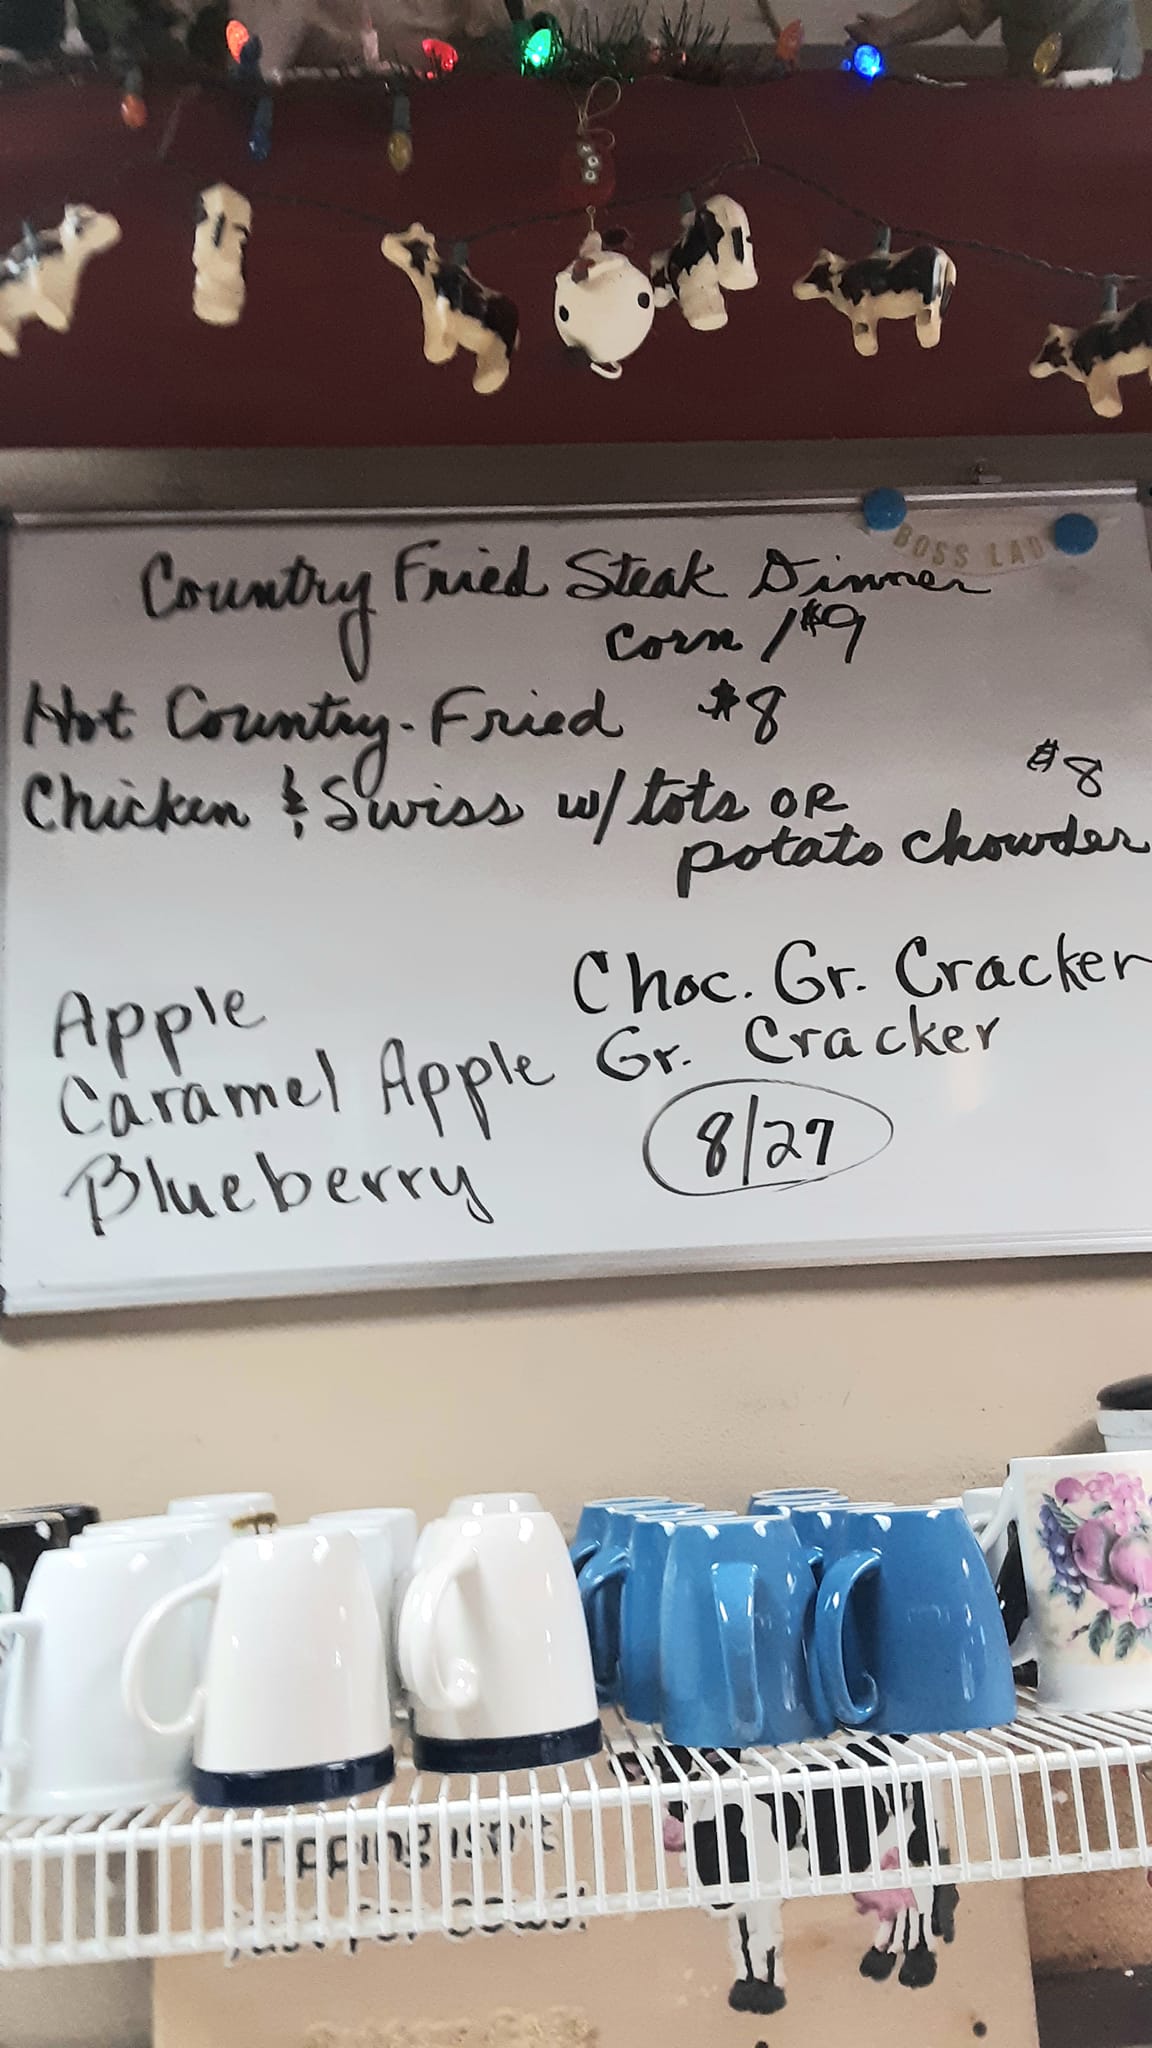 BOSS LAD
Country Fried Steak Dinner
corn / $9
Hot Country-Fried $8
Chicken & Swiss w/ tots OR $8
potato chowder
Apple
Caramel Apple
Blueberry
Choc. Gr. Cracker
Gr. Cracker
8/27
Tipping isn't
just for cows!